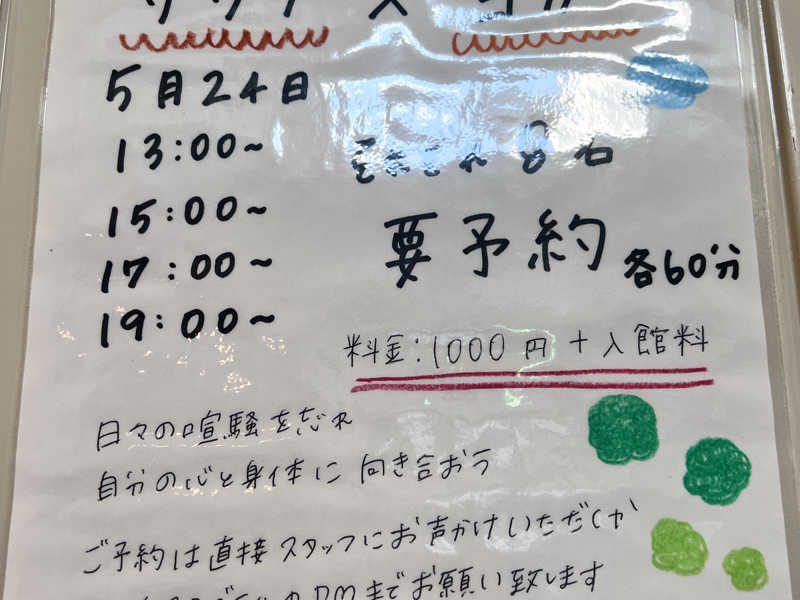 5月24日
13:00~
15:00~
17:00~
19:00~
それぞれ 8名
要予約 各60分
料金:1000円+入館料
日々の喧騒を忘れ
自分の心と身体に向き合おう
ご予約は直接スタッフにお声かけいただくか
DMまでお願い致します